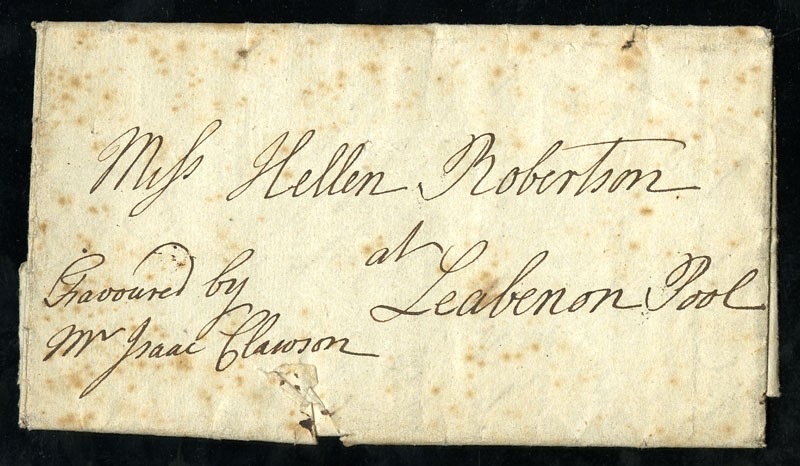 Miſs Hellen Robertson
at
Leabenon Pool
Favoured by
Mr Isaac Clawson